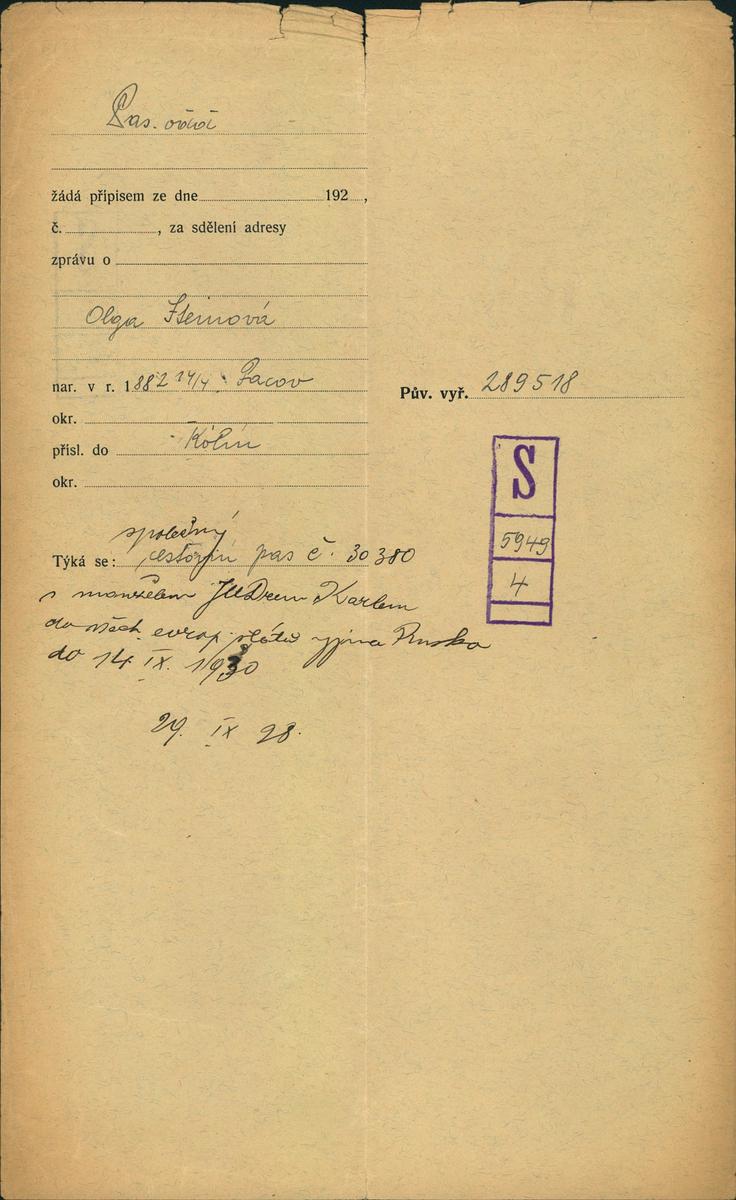 Pas. odd.
žádá přípisem ze dne 192 ,
č. , za sdělení adresy
zprávu o
Olga Steinová
nar. v r. 1882 14/4 Pacov
Pův. vyř. 289518
okr.
přísl. do Kolín
okr.
S
5949
4
společný
Týká se: cestovní pas č. 30380
s manželem JUDrem Karlem
do všech evrop. států vyjma Ruska
do 14 IX. 1930
29. IX 28.